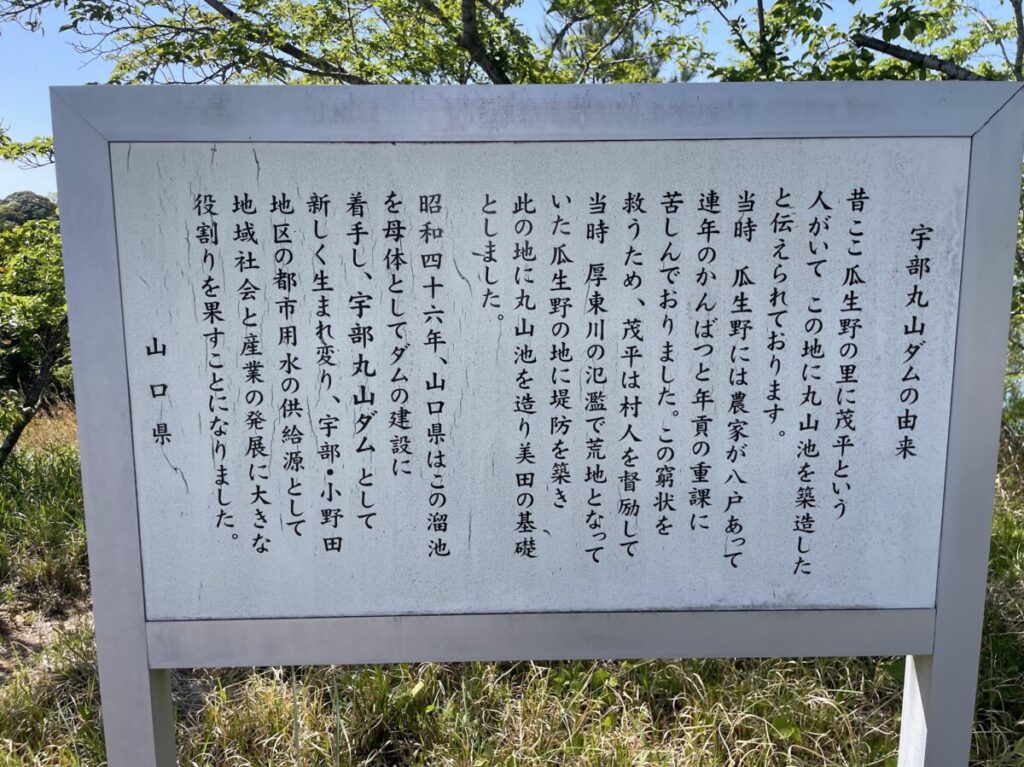 宇部丸山ダムの由来
昔ここ瓜生野の里に茂平という
人がいて この地に丸山池を築造した
と伝えられております。
当時 瓜生野には農家が八戸あって
連年のかんばつと年貢の重課に
苦しんでおりました。この窮状を
救うため、茂平は村人を督励して
当時 厚東川の氾濫で荒地となって
いた瓜生野の地に堤防を築き
此の地に丸山池を造り美田の基礎
としました。
昭和四十六年、山口県はこの溜池
を母体としてダムの建設に
着手し、宇部丸山ダムとして
新しく生まれ変り、宇部・小野田
地区の都市用水の供給源として
地域社会と産業の発展に大きな
役割りを果すことになりました。
山口県